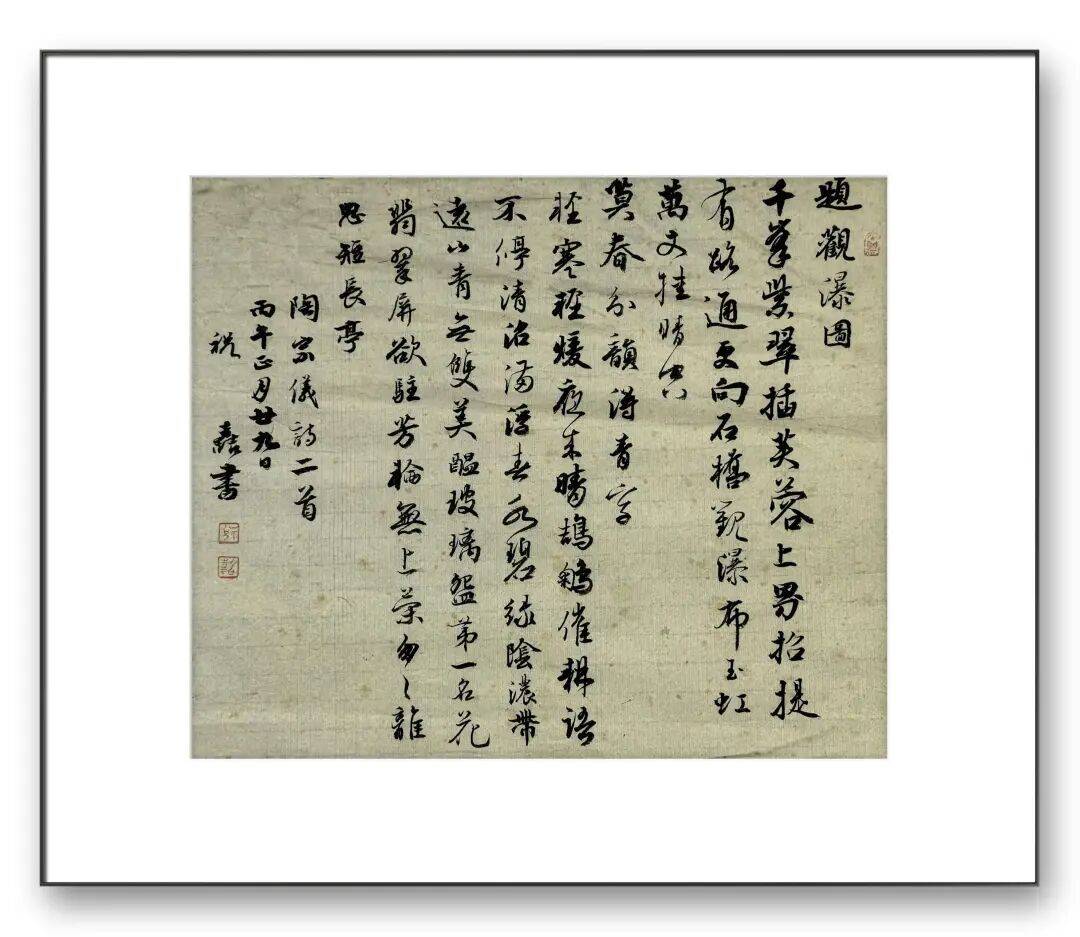 題觀瀑圖
千峯紫翠插芙蓉上界招提
有路通更向石橋觀瀑布玉虹
萬丈挂晴空
莫春分韻得青字
輕寒輕煖夜來晴鵓催耕語
不停清沼滿浮春水碧綠陰濃帶
遠山青无雙美醞玻璃盌第一名花
翡翠屏欲駐芳輪無上策匆々離
思短長亭
陶宗儀詩二首
丙午正月廿九日
祝 書